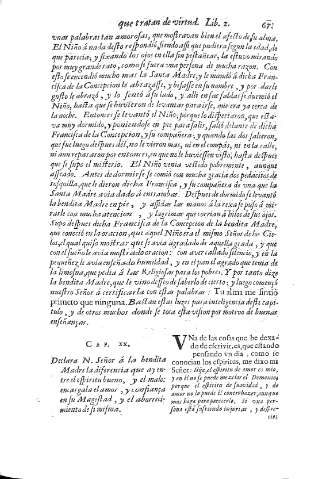 que tratan de virtud. Lib. 2. 67.
unas palabras tan amorosas, que mostravan bien el afecto de su alma.
El Niño á nada desto respondió, siendo assi que pudiera segun la edad, de
que parecia, y fixando los ojos en ella sin pestañear, la estuvo mirando
por muy grande rato, como si fuera persona de mucha razon. Con
esto se encendió mucho mas la Santa Madre, y le mandó á dicha Fran-
cisca de la Concepcion le abrazasse, y besasse en su nombre, y por darle
gusto le abrazó, y lo sentó a su lado, y alli en sus faldas se durmió el
Niño, hasta que se huvieron de levantar para irse, que era ya cerca de
la noche. Entonces se levantó el Niño, porque lo despertaron, que esta-
va muy dormido, y poniendose en pie para salir, salió delante de dicha
Francisca de la Concepcion, y su compañera; y quando las dos salieron,
que fue luego despues dél, no le vieron mas, ni en el compás, ni en la calle,
ni aun repararon por entonces, en que no le huviessen visto, hasta despues
que se supo el misterio. El Niño venia vestido pobremente, aunque
asseado. Antes de dormirse se comió con mucha gracia dos pedacitos de
rosquilla, que le dieron dicha Francisca, y su compañera de una que la
Santa Madre avia dado á entrambas. Despues de dormido se levantó
la bendita Madre en pie, y assidas las manos á la rexa se puso á mi-
rarle con mucha atencion, y lagrimas que corrian á hilos de sus ojos.
Supo despues dicha Francisca de la Concepcion de la bendita Madre,
que conoció en la oracion, que aquel Niño era el mismo Señor de los Cie-
los, el qual quiso mostrar que se avia agradado de aquella grada, y que
con el sueño avia mostrado oracion: con aver callado silencio, y en la
pequeñez le avia enseñado humildad, y en el pan el agrado que tenia de
la limosna, que pedia á las Religiosas para los pobres. Y por tanto dize
la bendita Madre, que le vino desseo de saberlo de cierto; y luego comenzó
nuestro Señor á certificarla con estas palabras: Tu alma me sirvió
primero que ninguna. Bastan estas luzes para inteligencia deste capi-
tulo, y de otros muchos donde se toca esta vision por motivo de buenas
enseñanzas.
CAP. XX.
Declara N. Señor á la bendita
Madre la diferencia que ay en-
tre el espiritu bueno, y el malo:
encargala el amor, y confianza
en su Magestad, y el aborreci-
miento de si misma.
UNa de las cosas que he dexa-
do de escrivir, es, que estando
pensando un dia, como se
conocian los espiritus, me dixo mi
Señor: Hija, el espiritu de amor es mio,
y en él no se puede mezclar el Demonio
porque el espiritu de suavidad, y de
amor no lo puede él contrahazer, aunque
mas haga para parecerlo. Si una per-
sona está sufriendo injurias, y despre-
cios